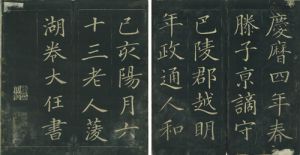 慶曆四年春
滕子亰謫守
巴陵郡越明
年政通人和
己亥陽月六
十三老人蔆
湖大任書